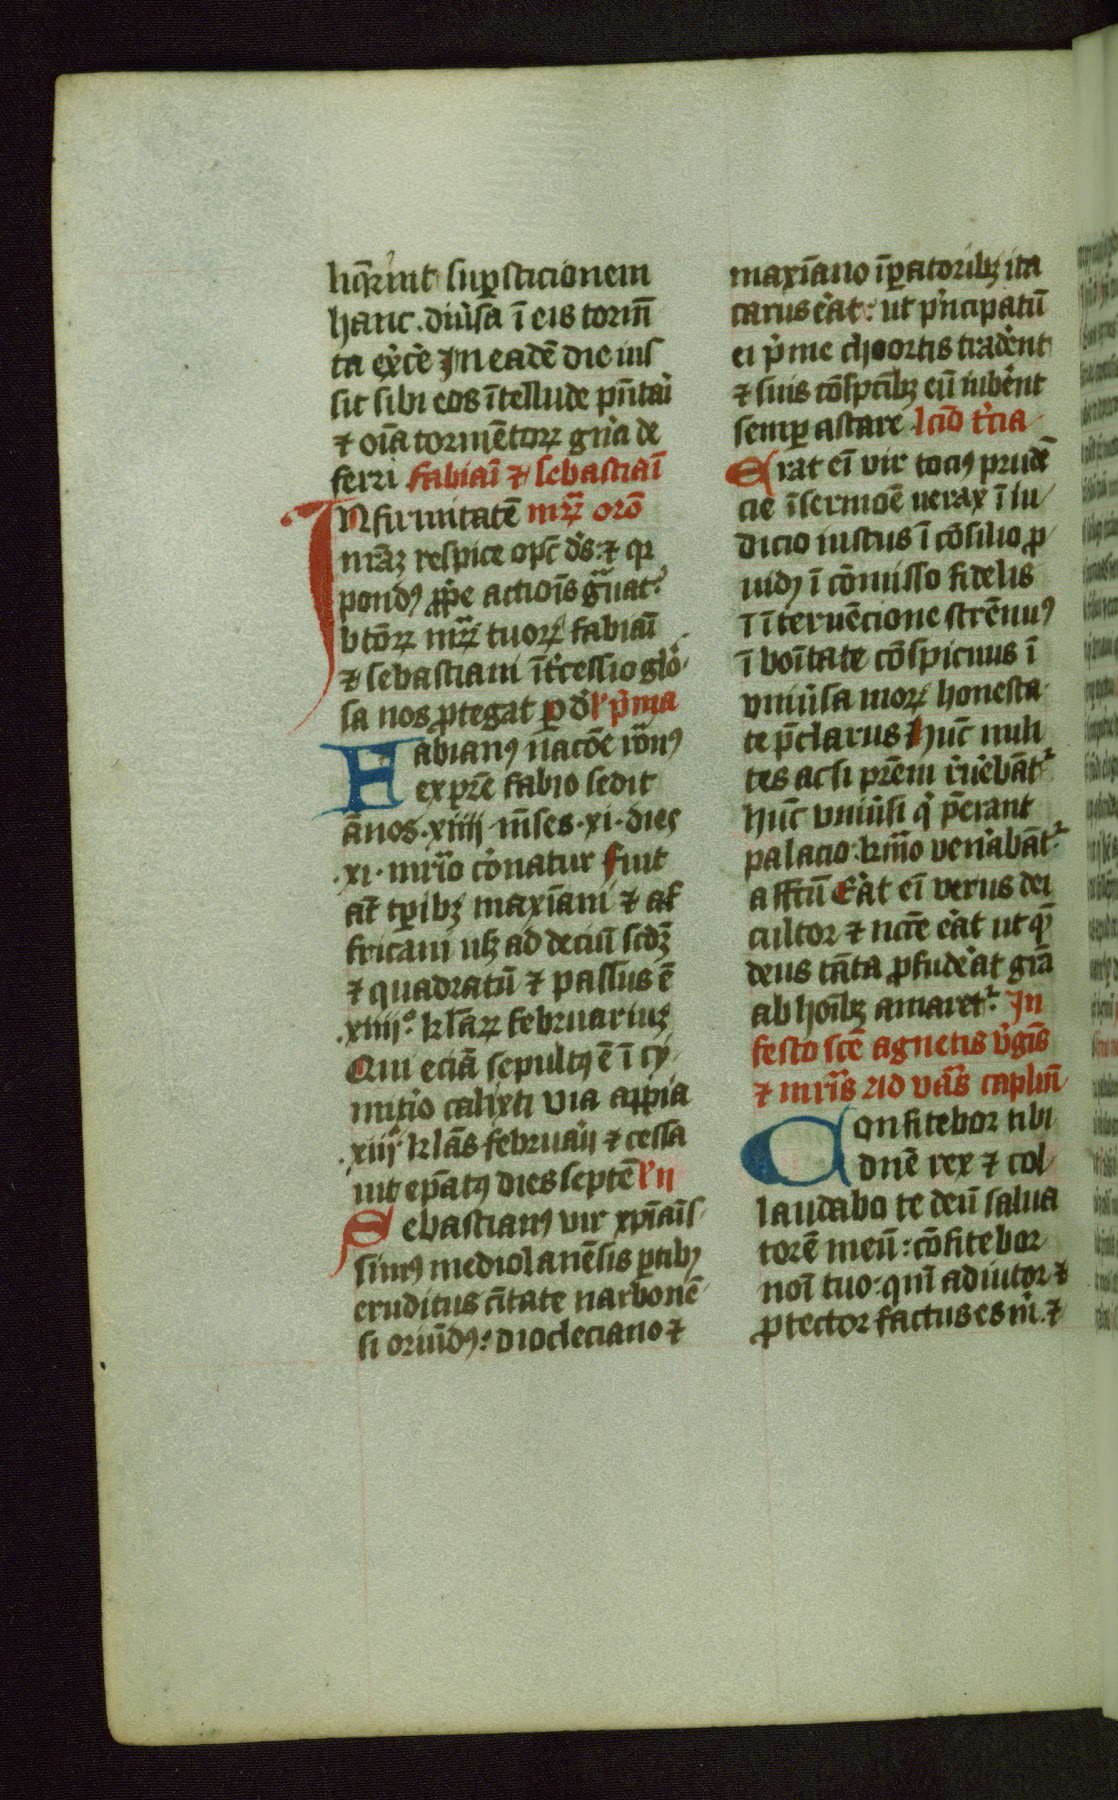 liq̄rint sup̱sticionem
hanc. diu̓sa ī eis torm̄
ta ex̓c̓e In eadē die iuſ
sit sibi eos ītellude pn̄tai̓
⁊ oīa tormētoꝝ gn̓a de
ferri fabiaī ⁊ sebastiaī
INfirmitatē mr̄ꝝ oro̅
nr̄aꝫ respice opc̄ ds̄: ⁊ qꝛ
pondꝰ ꝓpe actiois̄ gͣuat᷑
btōꝝ mr̄ꝝ tuoꝝ fabiaī
⁊ sebastiani īt̓cessio glo̓
sa nos ꝓtegat ꝑ d̓ lͦ p̓ma
Fabianꝰ nacōe rōnꝰ
ex pr̄e fabio sedit
ānos · xiiij · m̄ses · xi · dies
· xi · mr̓io co̓natur fuit
at̄ tꝑibꝫ maxīani ⁊ af
fricani usqꝫ ad deciū scd̄ꝫ
⁊ quadratū ⁊ passus ē
· xiiij° klāꝝ februariuꝫ
Qui eciā sepultꝰ ē ī cy
mit̓io calixti via appia
· xiij° klās februa̓ij ⁊ cessa
uit ep̄atꝰ dies septē lͦ ij
Sebastianꝰ vir xp̄ianis̄
simꝰ mediolanēsis ꝑtibꝫ
eruditus c̄itate narbonē
si oriūdꝰ: diocleciano ⁊
maxīano īꝑatoribꝫ ita
carus ea̓t: ut p̓ncipatū
ei p̓me choortis trade̓nt
⁊ suis cōspc̄ibꝫ eū iube̓nt
semꝑ astare lcīō t̓cia
Erat eī vir tociꝰ prudē
cie ī sermoē uerax ī iu
dicio iustus ī cōsilio ꝓ
uidꝰ ī cōmisso fidelis
ī īteruēcione strēnuꝰ
ī bon̄itate cōspicuus ī
vniu̓sa moꝝ honesta
te p̄clarus Hūc mili
tes ac si pr̄em ue̓ne̓bāt᷑
hūc vniu̓si q̓ p̄erant
palacio: kr̄mo ven̓abāt᷑
affctū Ea̓t eī verus dei
cultor ⁊ ncc̄e ea̓t ut qͫ
deus tāta ꝓfude̓at grā
ab hoībꝫ amaret᷑: In
festo sc̄e agnetis u̓gis̄
⁊ mr̄is Ad vas̄ caplm̄
Confitebor tibi
dn̄e rex ⁊ col
laudabo te deū salua
torē meū: cōfitebor
noī tuo: qm̄ adiutor ⁊
ꝓtector factus es m̓. ⁊